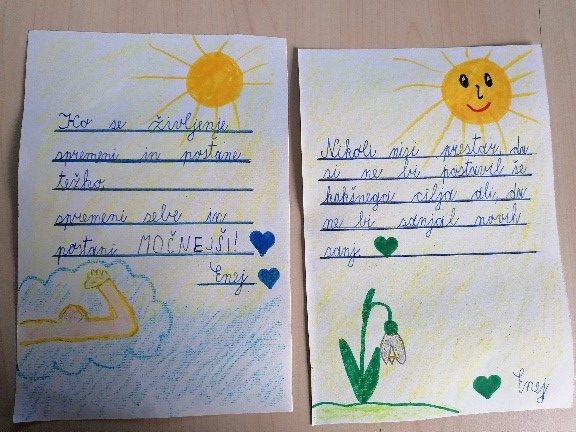 Ko se življenje
spremeni in postane
težko
spremeni sebe in
postani MOČNEJŠI!
Enej
Nikoli nisi prestar da
si ne bi postavil še
kakšnega cilja ali da
ne bi sanjal novih
sanj
Enej